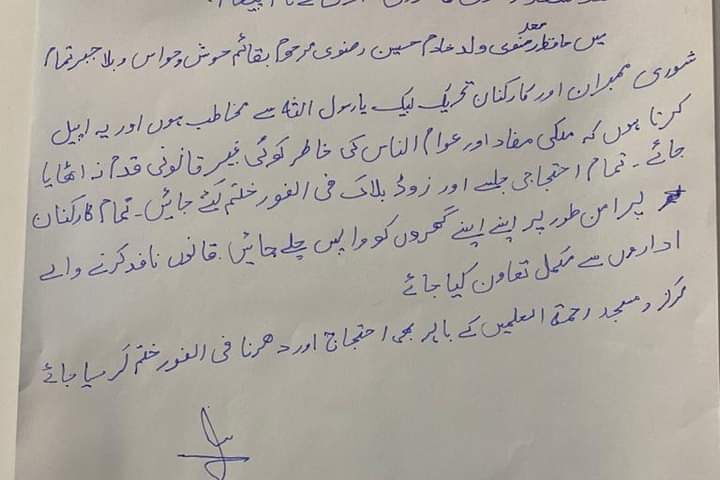 میں حافظ محمد سعد رضوی ولد خادم حسین رضوی مرحوم بقائم ہوش و حواس و بلا جبر تمام
شوری ممبران اور کارکنان تحریک لبیک یا رسول اللہ سے مخاطب ہوں اور یہ اپیل
کرتا ہوں کہ ملکی مفاد اور عوام الناس کی خاطر کوئی غیر قانونی قدم نہ اٹھایا
جائے۔ تمام احتجاجی جلسے اور روڈ بلاک فی الفور ختم کئے جائیں۔ تمام کارکنان
پرامن طور پر اپنے اپنے گھروں کو واپس چلے جائیں۔ قانون نافذ کرنے والے
اداروں سے مکمل تعاون کیا جائے
مرکز و مسجد رحمۃ العلمین کے باہر بھی احتجاج اور دھرنا فی الفور ختم کر دیا جائے